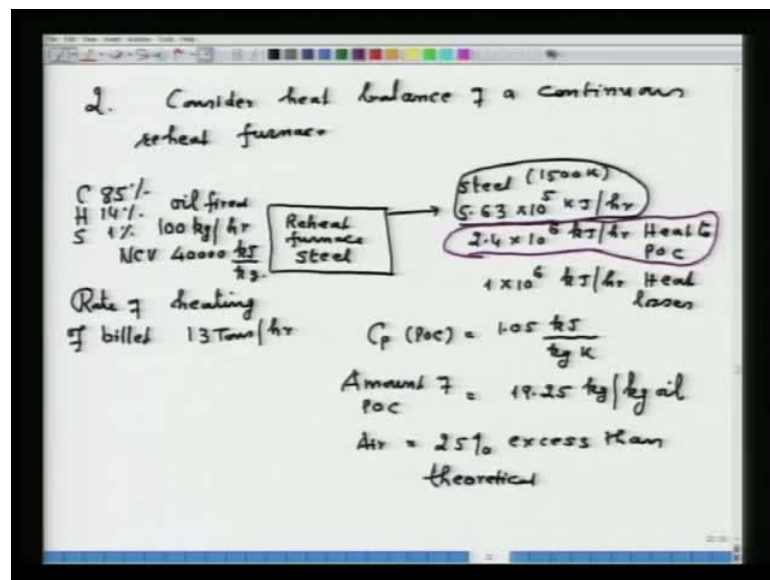 2. Consider heat balance of a continuous
reheat furnace
C 85%
H 14%
S 1%
oil fired
100 kg/hr
NCV 40000 kJ/kg.
Reheat
furnace
steel
steel (1500 K)
5.63 × 10^5 kJ/hr
2.4 × 10^6 kJ/hr Heat to
POC
1 × 10^6 kJ/hr Heat
losses
Rate of heating
of billet 13 Tons/hr
Cp (POC) = 1.05 kJ/kg K
Amount of
POC = 19.25 kg/kg oil
Air = 25% excess than
theoretical